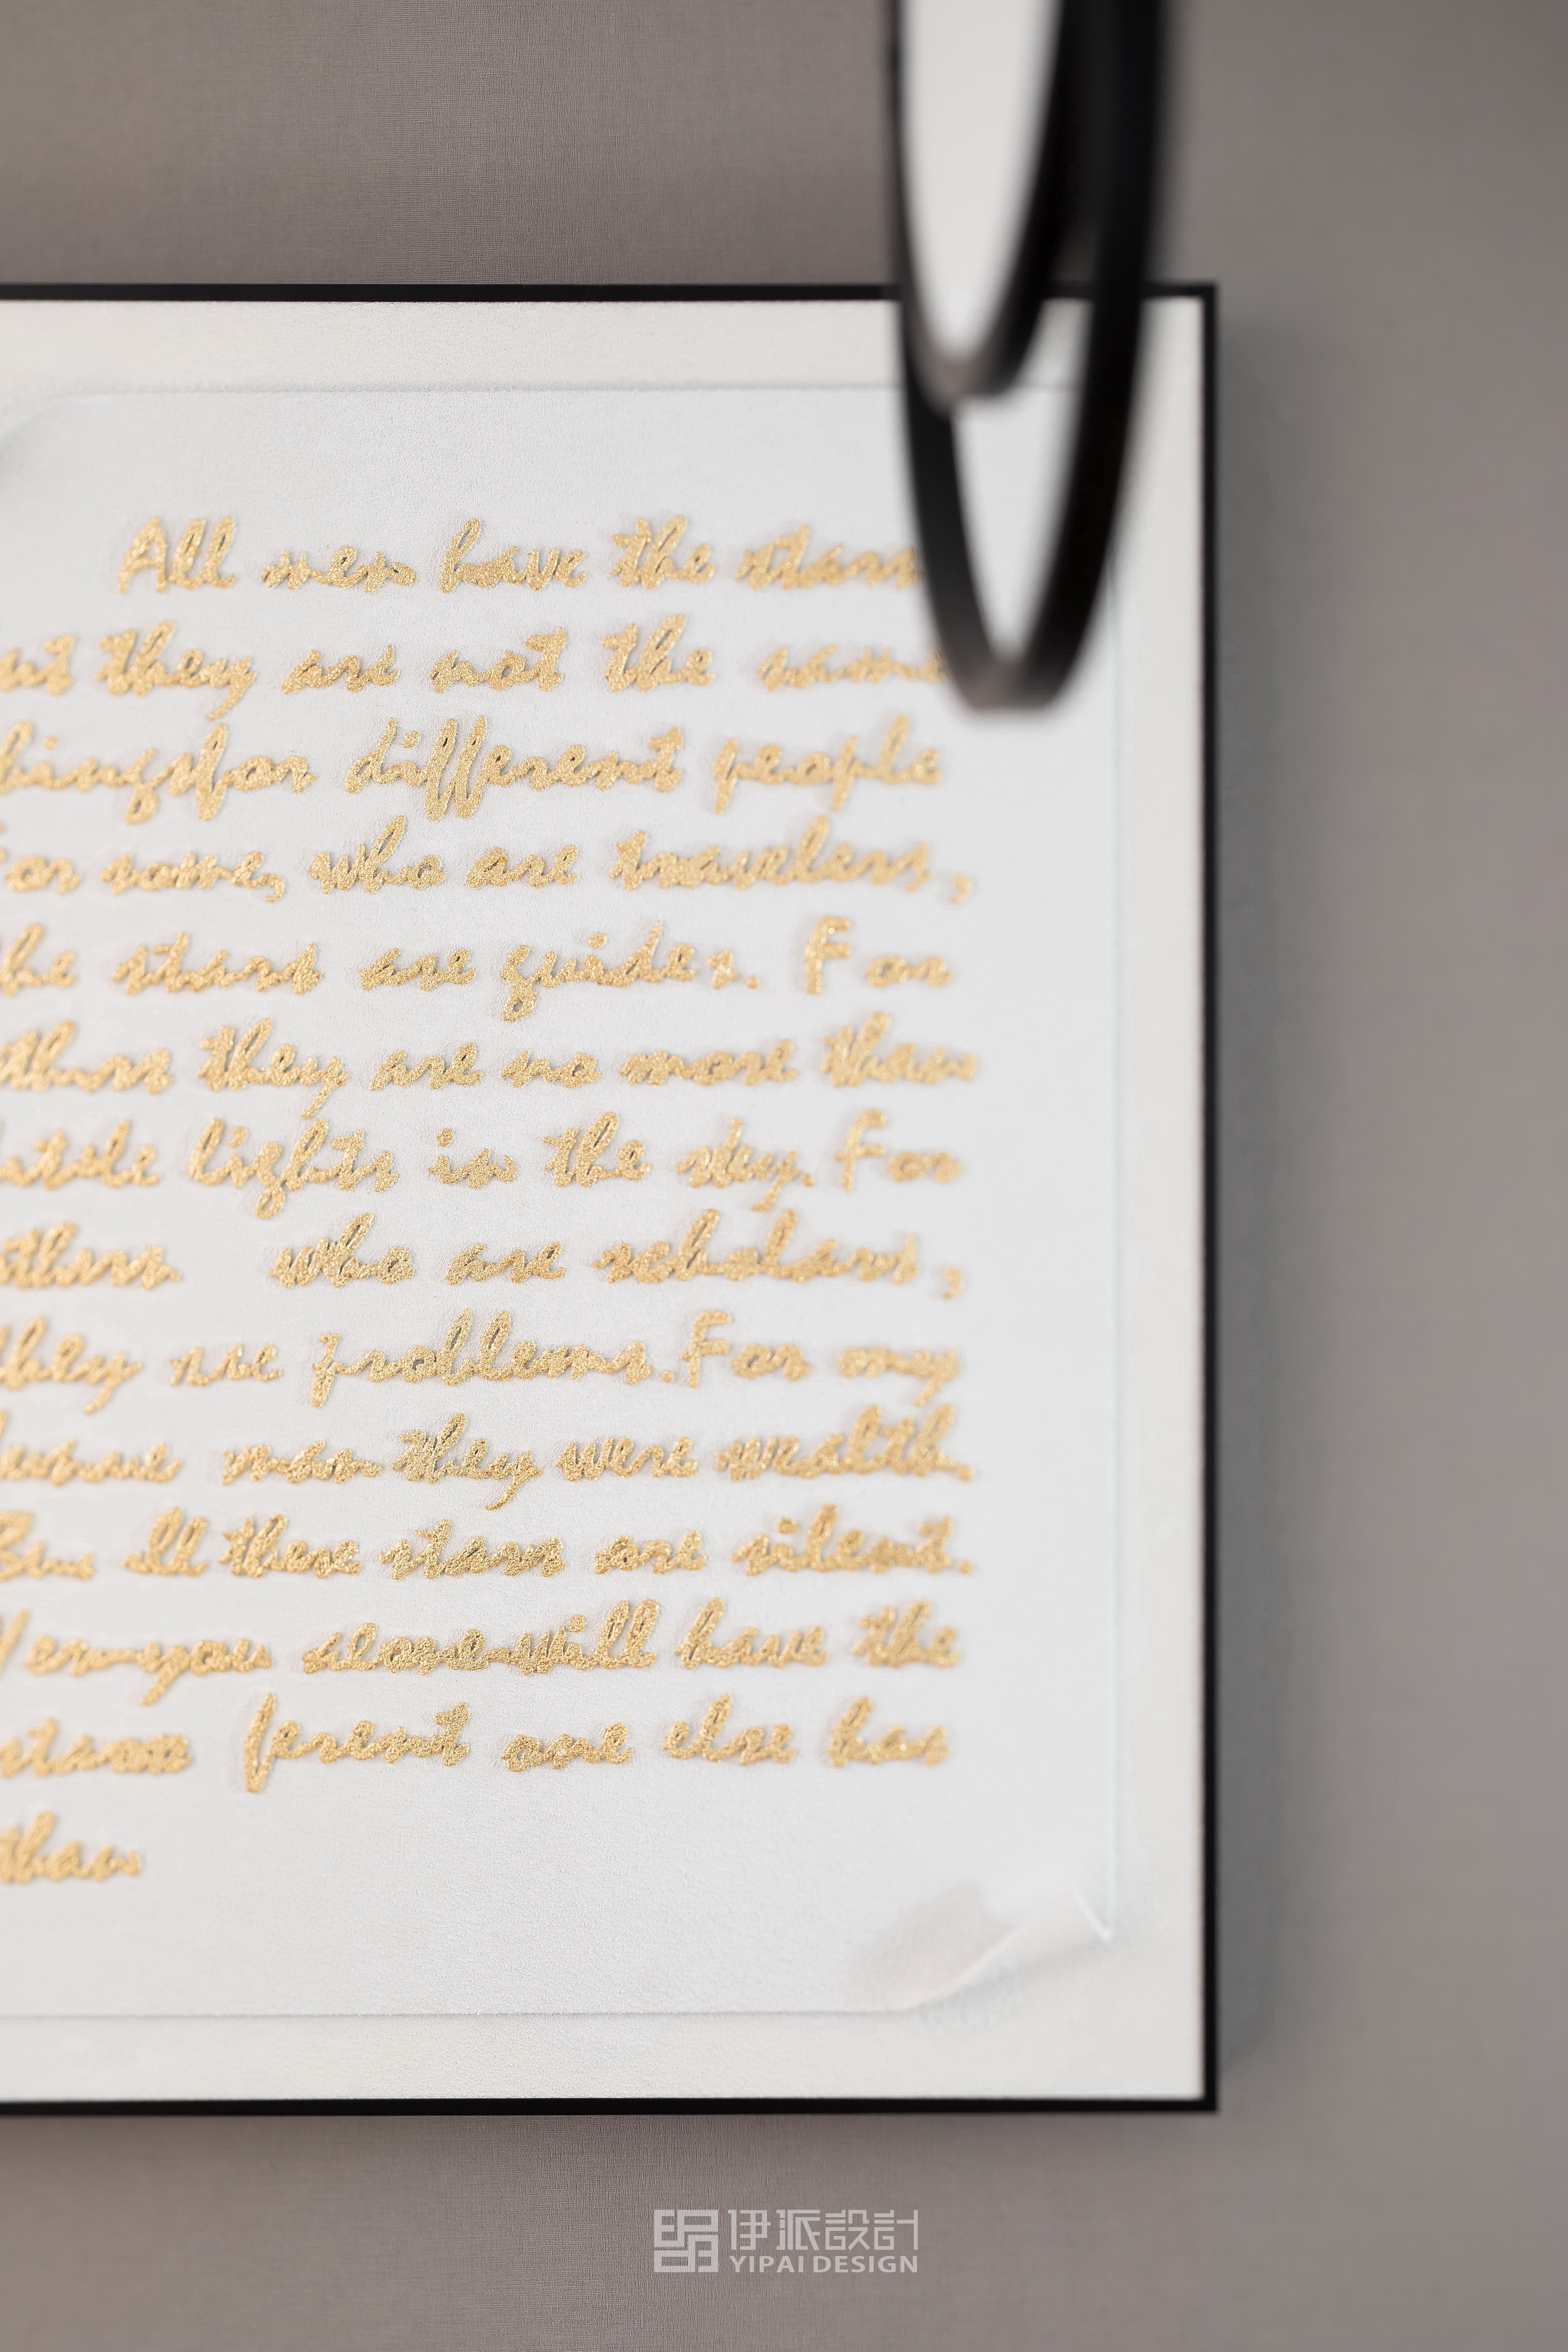 All men have the stars
ut they are not the same
hingsfor different people
For some, who are travelers,
he stars are guides. For
thers they are no more than
lights in the sky. For
thers who are scholars,
they are problems. For my
man they were wealth.
all these stars are silent.
you alone will have the
stars one else has
than
伊派設計
YIPAI DESIGN